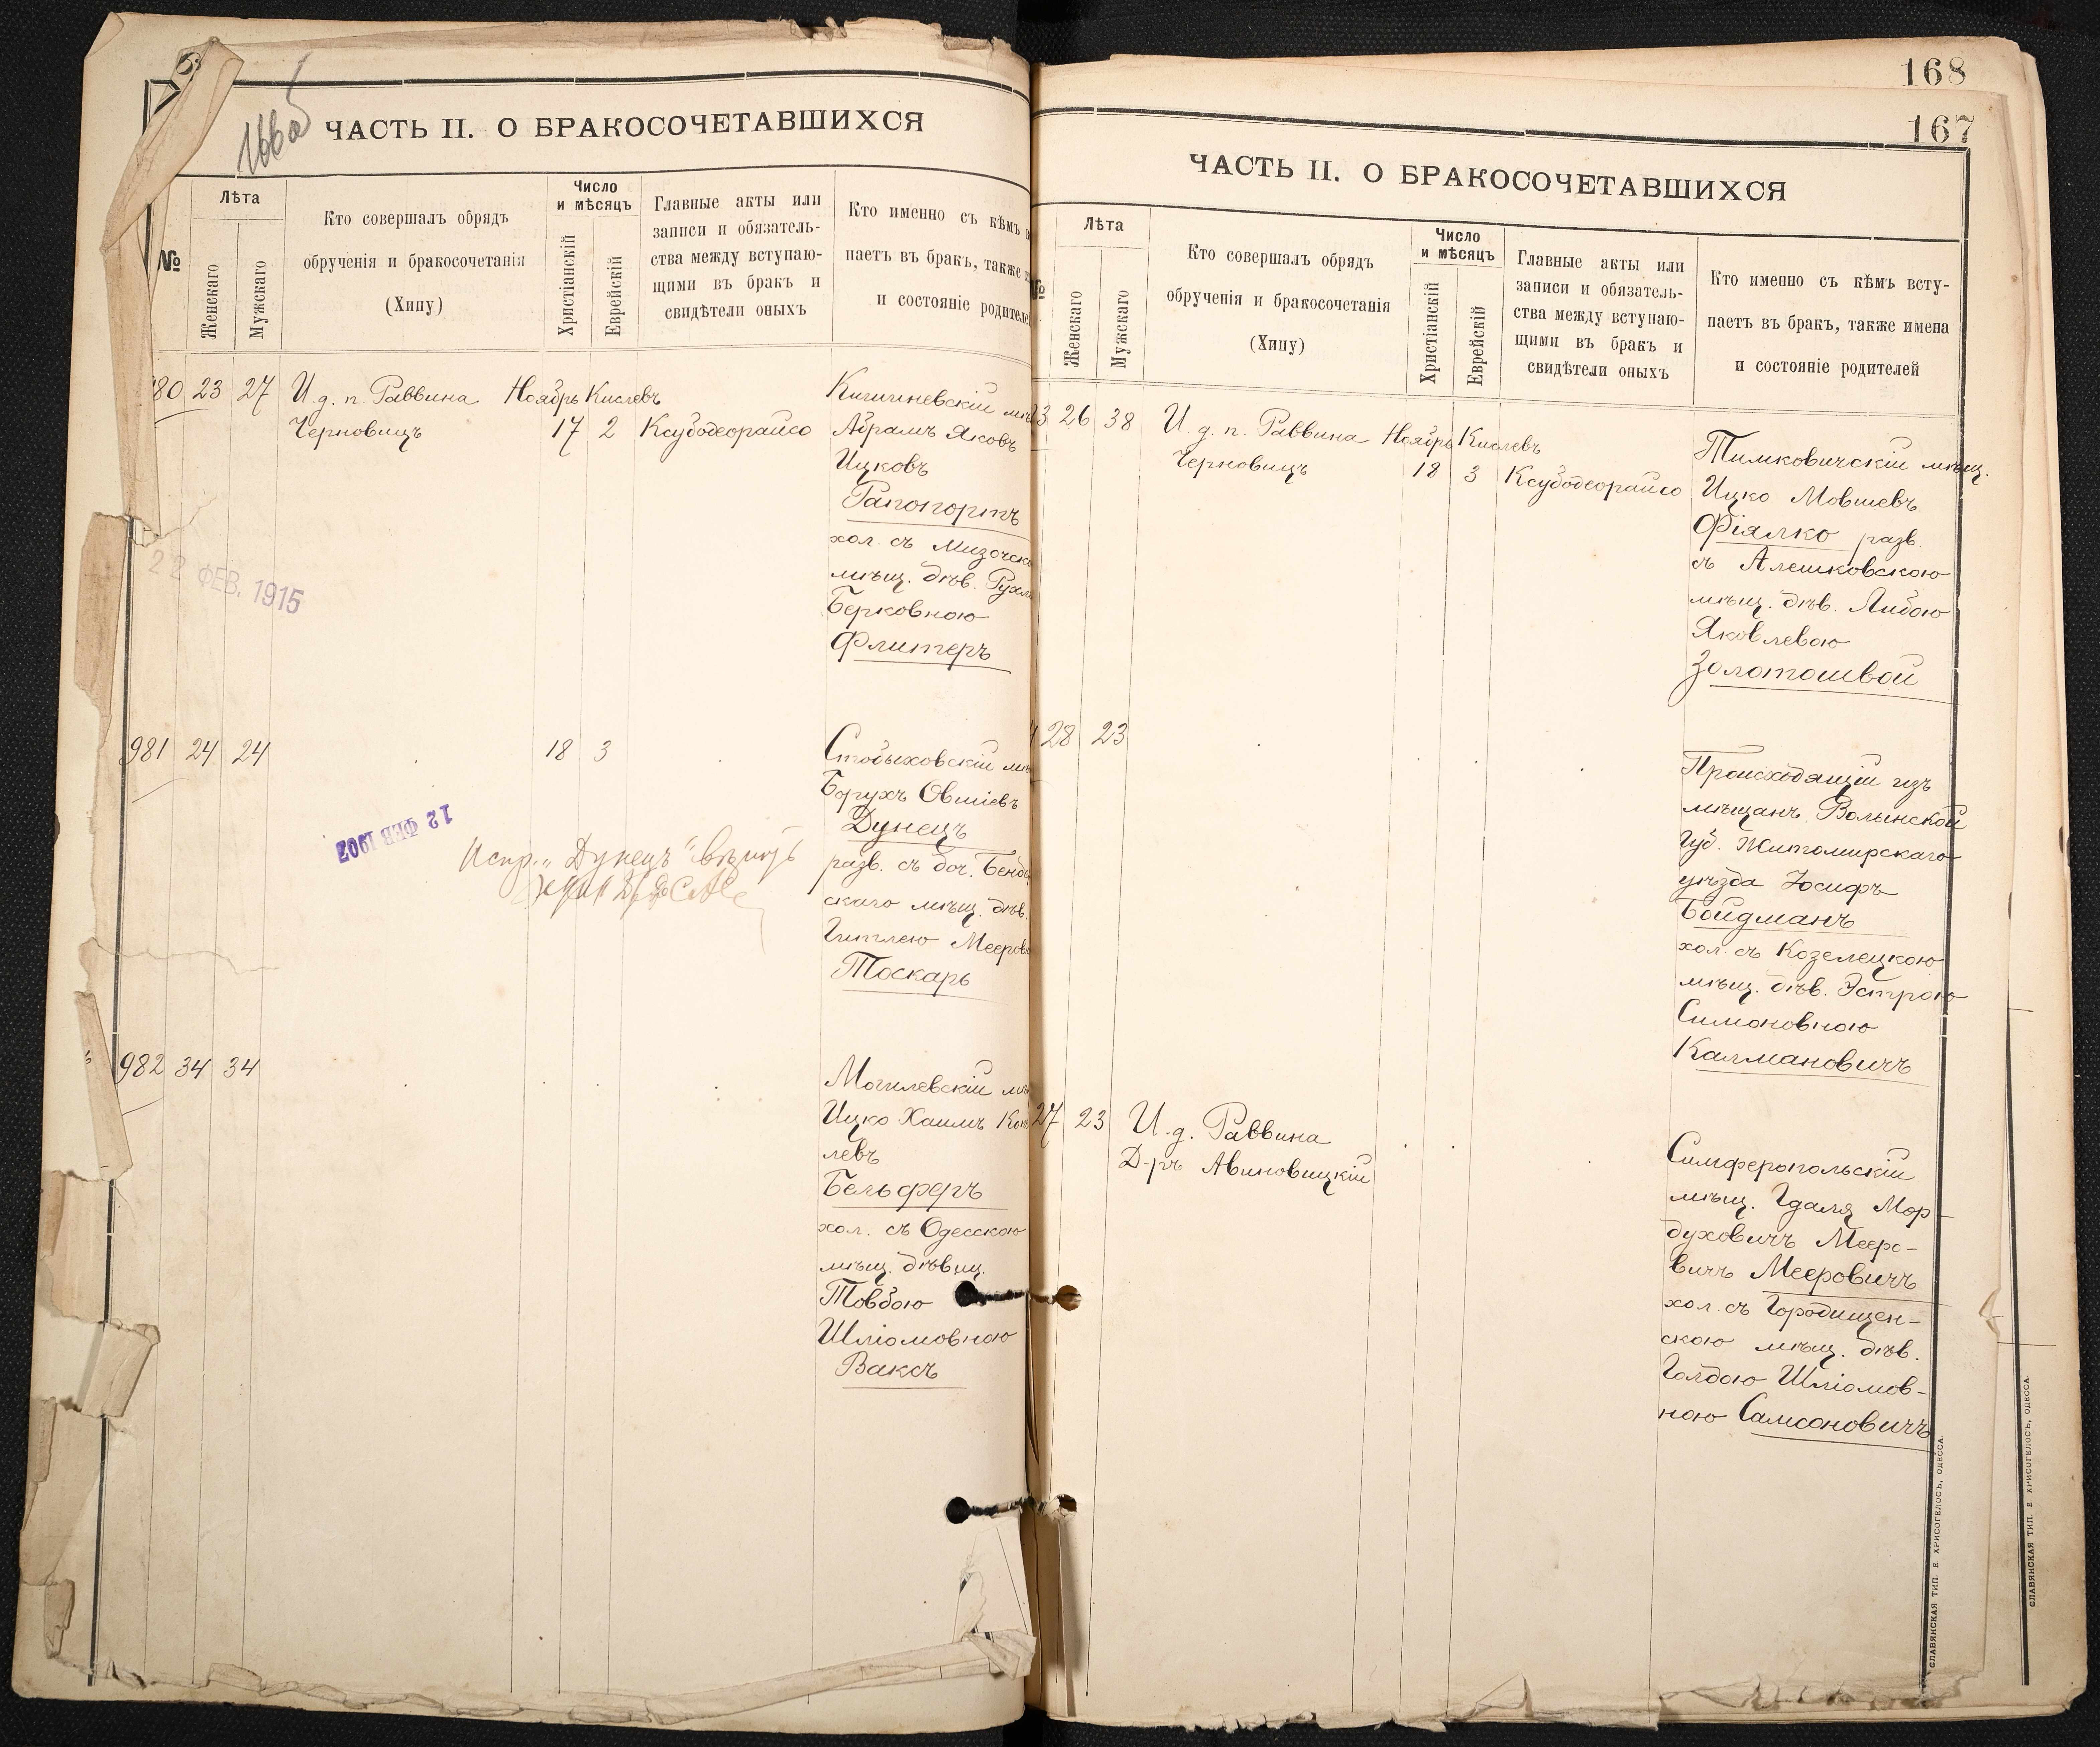 166 об
ЧАСТЬ II. О БРАКОСОЧЕТАВШИХСЯ
№
Лѣта
Женскаго
Мужскаго
Кто совершалъ обрядъ
обрученія и бракосочетанія
(Хипу)
Число
и мѣсяцъ
Христіанскій
Еврейскій
Главные акты или
записи и обязатель-
ства между вступаю-
щими въ бракъ и
свидѣтели оныхъ
Кто именно съ кѣмъ в
паетъ въ бракъ, также
и состояніе родителе
80 23 27 И. д. п. Раввина Ноябрь Кислевъ Кишиневскій мѣ
Черновицъ 17 2 Ксубодеорайсо Абрамъ Яковъ
Ицковъ
Рапопортъ
хол. съ Мизочск
мѣщ. дѣв. Рухл
Берковною
Флитеръ
22 ФЕВ. 1915
981 24 24 18 3 Стобыховскій мѣ
Борухъ Овшіевъ
Дунецъ
разв. съ доч. Бенде
скаго мѣщ. дѣв.
Гитлею Мееров
Тоскарь
12 ФЕВ 1902
Испр. „Дунецъ"
982 34 34 Могилевскій мѣ
Ицко Хаимъ Ко
левъ
Бельферъ
хол. съ Одесскою
мѣщ. дѣвиц.
Товбою
Шліомовною
Ваксъ
168
167
ЧАСТЬ II. О БРАКОСОЧЕТАВШИХСЯ
№
Лѣта
Женскаго
Мужскаго
Кто совершалъ обрядъ
обрученія и бракосочетанія
(Хипу)
Число
и мѣсяцъ
Христіанскій
Еврейскій
Главные акты или
записи и обязатель-
ства между вступаю-
щими въ бракъ и
свидѣтели оныхъ
Кто именно съ кѣмъ всту-
паетъ въ бракъ, также имена
и состояніе родителей
3 26 38 И. д. п. Раввина Ноябрь Кислевъ Тимковичскій мѣщ.
Черновицъ 18 3 Ксубодеорайсо Ицко Мовшевъ
Фіялко разв.
съ Алешковскою
мѣщ. дѣв. Либою
Яковлевою
Золотошвой
28 23 Происходящій изъ
мѣщанъ Волынской
Губ. Житомирскаго
уѣзда Іосифъ
Бойдманъ
хол. съ Козелецкою
мѣщ. дѣв. Эстрою
Симоновною
Калмановичъ
27 23 И. д. Раввина
Д-ръ Авиновицкій
Симферопольскій
мѣщ. Гдаля Мор-
духовичъ Мееро-
вичъ Мееровичъ
хол. съ Городищен-
скою мѣщ. дѣв.
Голдою Шліомов-
ною Самсоновичъ
СЛАВЯНСКАЯ ТИП. Е. ХРИСОГЕЛОСЪ, ОДЕССА.
СЛАВЯНСКАЯ ТИП. Е. ХРИСОГЕЛОСЪ, ОДЕССА.